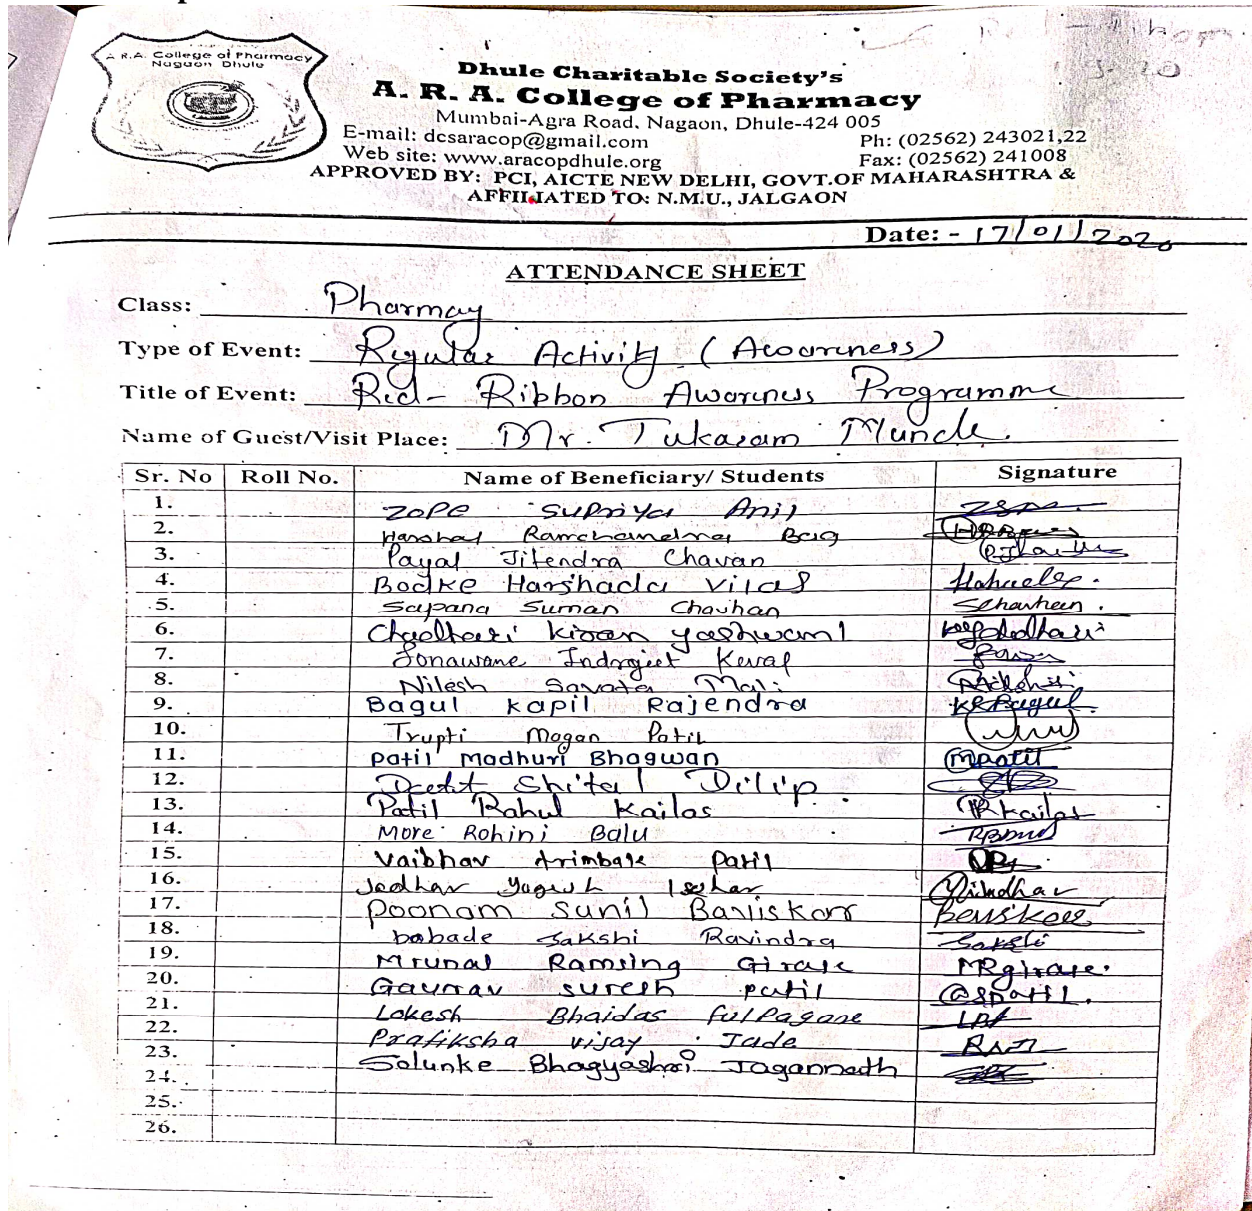 A.R.A. College of Pharmacy
Nagaon Dhule
Dhule Charitable Society's
A. R. A. College of Pharmacy
Mumbai-Agra Road, Nagaon, Dhule-424 005
E-mail: dcsaracop@gmail.com Ph: (02562) 243021,22
Web site: www.aracopdhule.org Fax: (02562) 241008
APPROVED BY: PCI, AICTE NEW DELHI, GOVT.OF MAHARASHTRA &
AFFILIATED TO: N.M.U., JALGAON
Date: - 17/01/2020
ATTENDANCE SHEET
Class: Pharmay
Type of Event: Regular Activity (Awareness)
Title of Event: Red-Ribbon Awarness Programme
Name of Guest/Visit Place: Mr. Tukaram Munde.
Sr. No Roll No. Name of Beneficiary/ Students Signature
1. Zope Supriya Anil
2. Harshal Ramchandra Bag
3. Payal Jitendra Chavan
4. Bodke Harshada Vilas
5. Sapana Suman Chauhan
6. Chaudhari Kiran Yashwant
7. Sonawane Indrajeet Keval
8. Nilesh Savata Mali
9. Bagul Kapil Rajendra KRBagul.
10. Trupti Magan Patil
11. Patil Madhuri Bhagwan MPatil
12. Shital Dilip.
13. Patil Rahul Kailas RKailas
14. More Rohini Balu
15. Vaibhav Trimbak Patil
16. Jadhav Yogesh Ishwar
17. Poonam Sunil Baviskorr
18. babade Sakshi Ravindra Sakshi
19. Mrunal Ramsing Girase MRgirase.
20. Gaurav suresh patil GSpatil.
21. Lokesh Bhaidas Fulpagare
22. Pratiksha vijay Jade
23. Solunke Bhagyashri Jagannath
24.
25.
26.